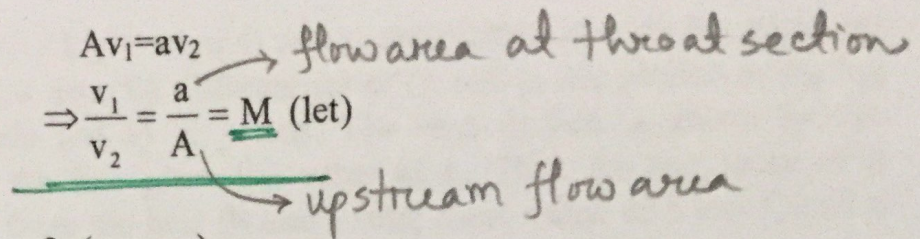 Av₁=av₂ → flow area at throat section
⇒ v₁/v₂ = a/A = M (let)
→ upstream flow area